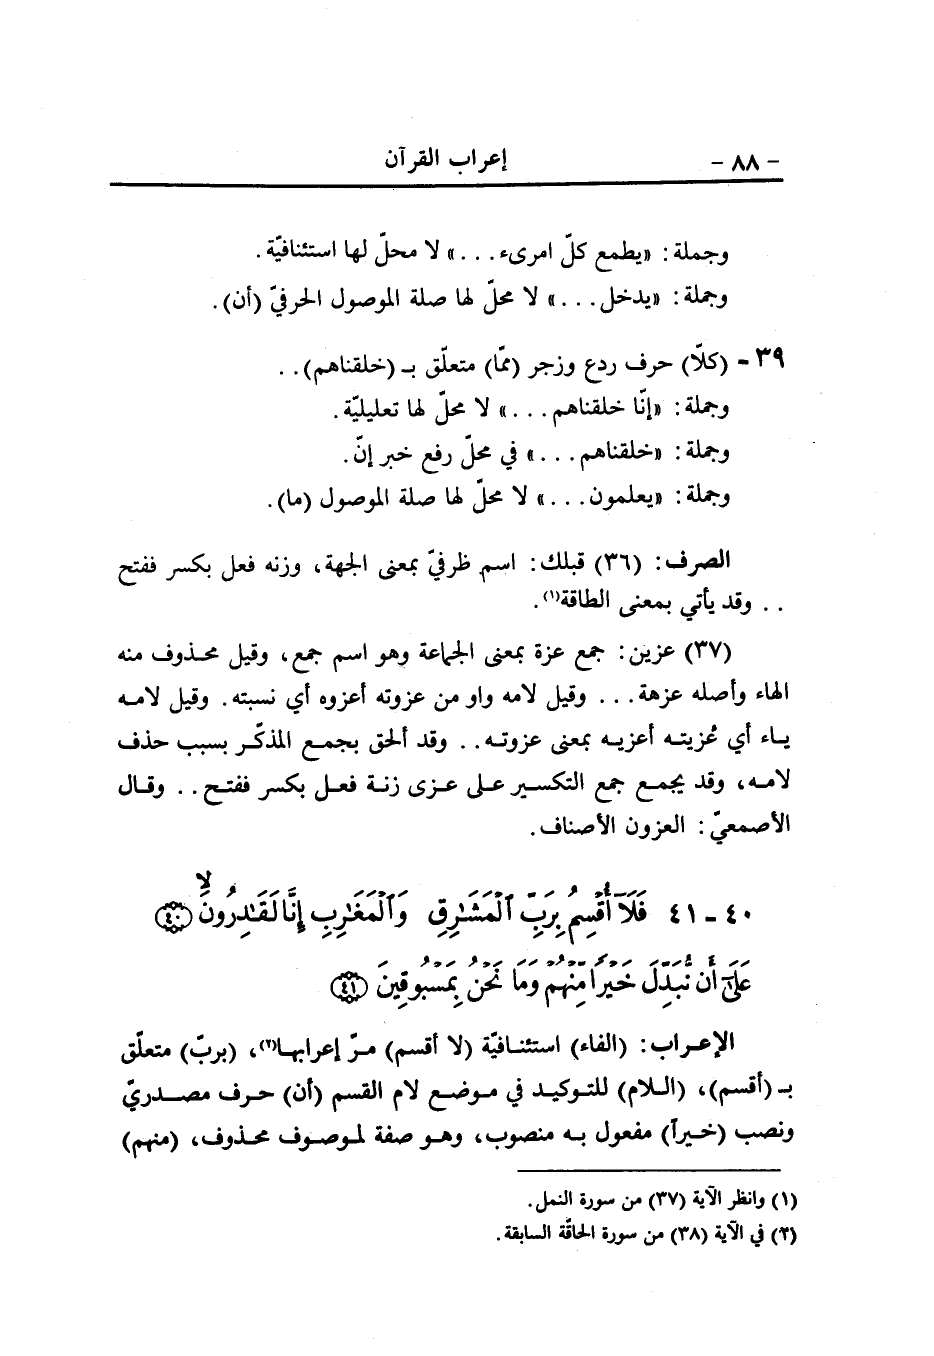 - ٨٨ - إعراب القرآن
وجملة: «يطمع كلّ امرىء...» لا محلّ لها استئنافيّة.
وجملة: «يدخل...» لا محلّ لها صلة الموصول الحرفيّ (أن).
٣٩ - (كلّا) حرف ردع وزجر (ممّا) متعلّق بـ (خلقناهم)..
وجملة: «إنّا خلقناهم...» لا محلّ لها تعليليّة.
وجملة: «خلقناهم...» في محلّ رفع خبر إنّ.
وجملة: «يعلمون...» لا محلّ لها صلة الموصول (ما).
الصرف: (٣٦) قبلك: اسم ظرفيّ بمعنى الجهة، وزنه فعل بكسر ففتح
.. وقد يأتي بمعنى الطاقة(١).
(٣٧) عزين: جمع عزة بمعنى الجماعة وهو اسم جمع، وقيل محذوف منه
الهاء وأصله عزهة... وقيل لامه واو من عزوته أعزوه أي نسبته. وقيل لامه
ياء أي عُزيته أعزيه بمعنى عزوته.. وقد ألحق بجمع المذكّر بسبب حذف
لامه، وقد يجمع جمع التكسير على عزى زنة فعل بكسر ففتح.. وقال
الأصمعيّ: العزون الأصناف.
٤٠ - ٤١ فَلَآ أُقْسِمُ بِرَبِّ ٱلْمَشَٰرِقِ وَٱلْمَغَٰرِبِ إِنَّا لَقَٰدِرُونَۙ ﴿٤٠﴾
عَلَىٰٓ أَن نُّبَدِّلَ خَيْرًا مِّنْهُمْ وَمَا نَحْنُ بِمَسْبُوقِينَ ﴿٤١﴾
الإعراب: (الفاء) استئنافيّة (لا أقسم) مرّ إعرابها(٢)، (بربّ) متعلّق
بـ (أقسم)، (اللام) للتوكيد في موضع لام القسم (أن) حرف مصدريّ
ونصب (خيراً) مفعول به منصوب، وهو صفة لموصوف محذوف، (منهم)
(١) وانظر الآية (٣٧) من سورة النمل.
(٢) في الآية (٣٨) من سورة الحاقّة السابقة.